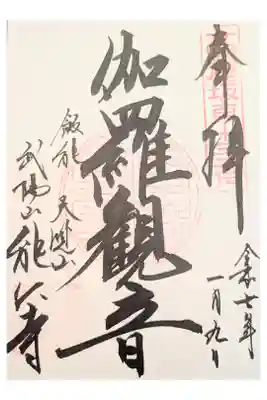 奉拝
令和七年
一月九日
伽羅観音
飯能 天覧山
武陽山能仁寺